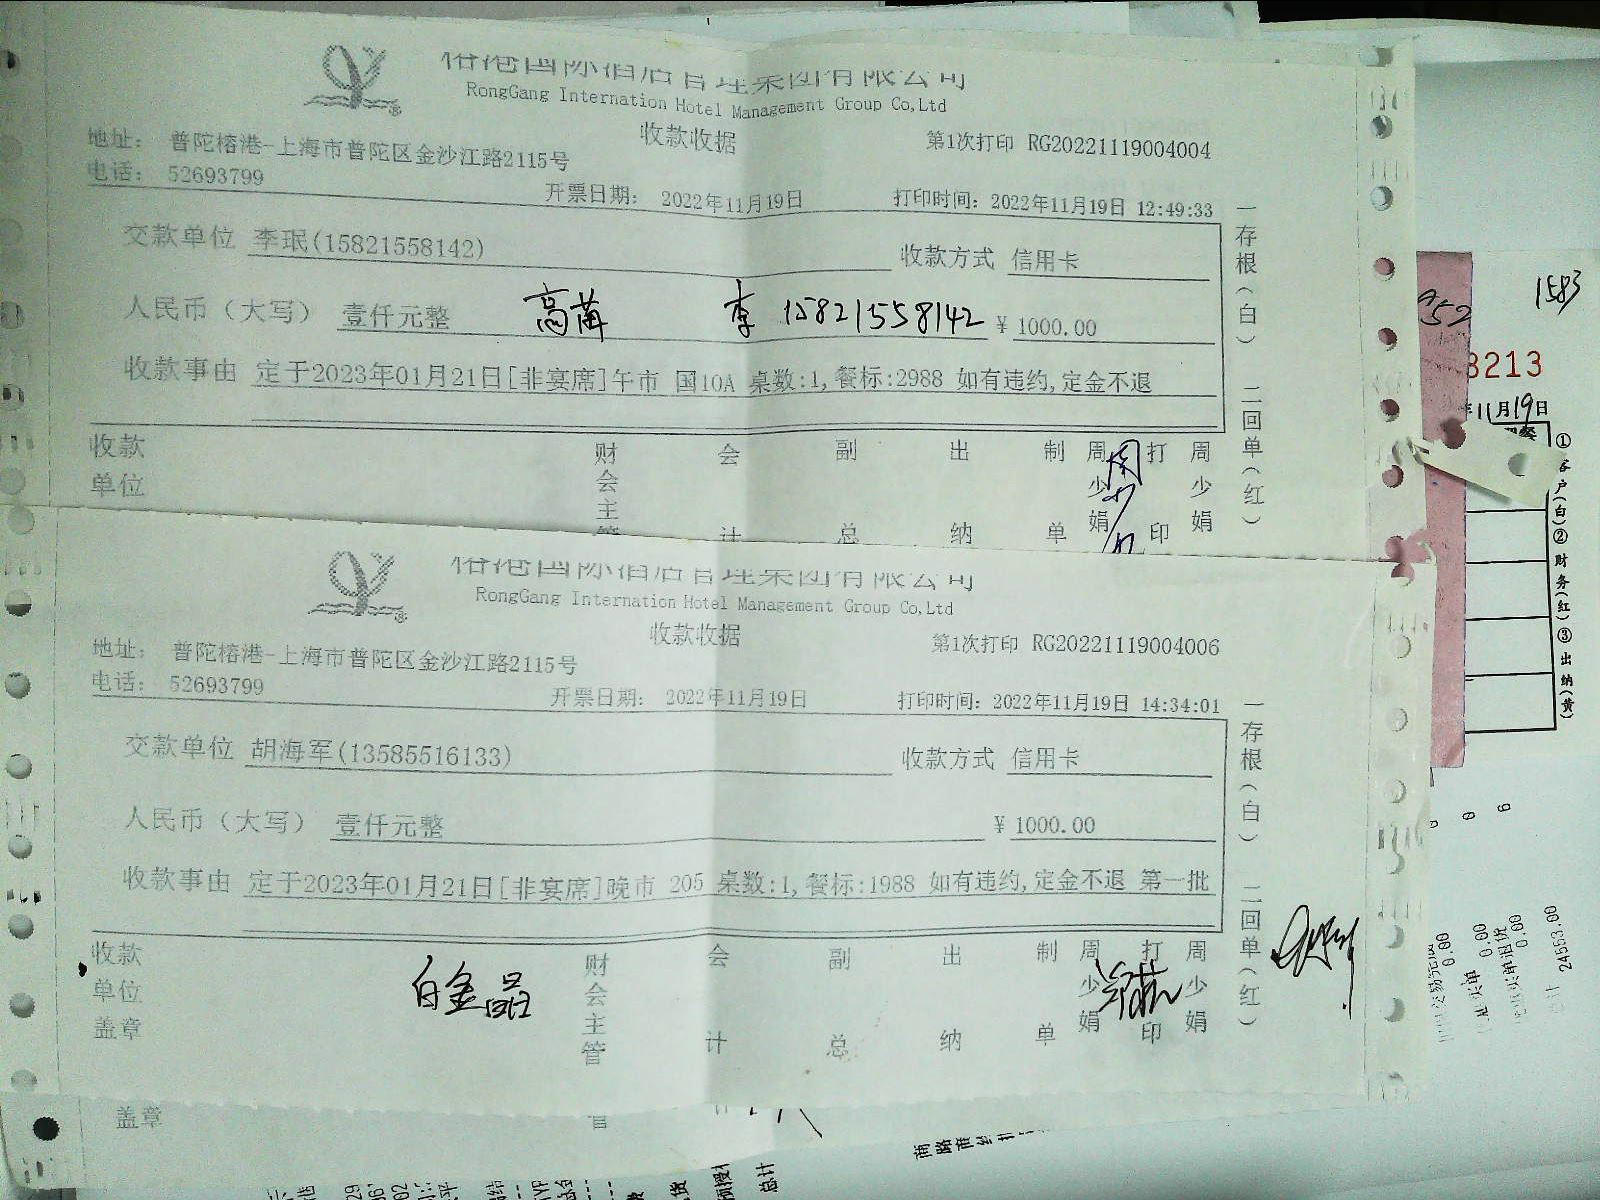 榕港国际酒店管理集团有限公司
RongGang Internation Hotel Management Group Co,Ltd
收款收据
第1次打印 RG20221119004004
地址: 普陀榕港-上海市普陀区金沙江路2115号
电话: 52693799
开票日期: 2022年11月19日
打印时间: 2022年11月19日 12:49:33
交款单位 李珉(15821558142)
收款方式 信用卡
人民币(大写) 壹仟元整
李 15821558142
¥ 1000.00
收款事由 定于2023年01月21日[非宴席]午市 国10A 桌数:1,餐标:2988 如有违约,定金不退
一存根(白) 二回单(红)
收款单位
财会主管
会计
副总
出纳
制单
周少娟
打印
周少娟
榕港国际酒店管理集团有限公司
RongGang Internation Hotel Management Group Co,Ltd
收款收据
第1次打印 RG20221119004006
地址: 普陀榕港-上海市普陀区金沙江路2115号
电话: 52693799
开票日期: 2022年11月19日
打印时间: 2022年11月19日 14:34:01
交款单位 胡海军(13585516133)
收款方式 信用卡
人民币(大写) 壹仟元整
¥ 1000.00
收款事由 定于2023年01月21日[非宴席]晚市 205 桌数:1,餐标:1988 如有违约,定金不退 第一批
一存根(白) 二回单(红)
收款单位盖章
白金品
财会主管
会计
副总
出纳
制单
周少娟
打印
周少娟
盖章
1583
A52
3213
11月19日
①客户(白)②财务(红)③出纳(黄)
0.00
0.00
0.00
24553.00
总计